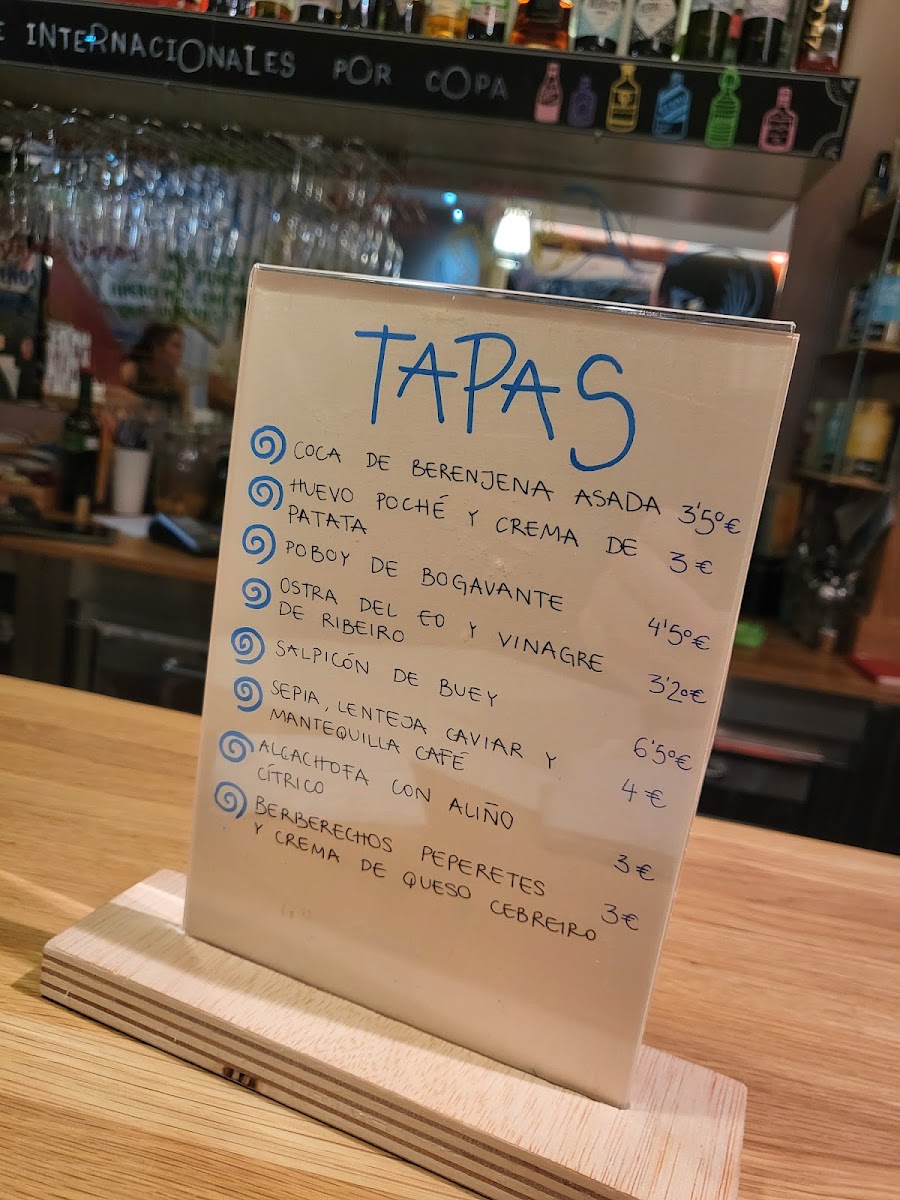 E INTERNACIONALES POR COPA
TAPAS
COCA DE BERENJENA ASADA 3'50€
HUEVO POCHÉ Y CREMA DE
PATATA 3€
POBOY DE BOGAVANTE 4'50€
OSTRA DEL EO Y VINAGRE
DE RIBEIRO 3'20€
SALPICÓN DE BUEY 6'50€
SEPIA, LENTEJA CAVIAR Y
MANTEQUILLA CAFÉ 4€
ALCACHOFA CON ALIÑO
CÍTRICO 3€
BERBERECHOS PEPERETES
Y CREMA DE QUESO CEBREIRO 3€